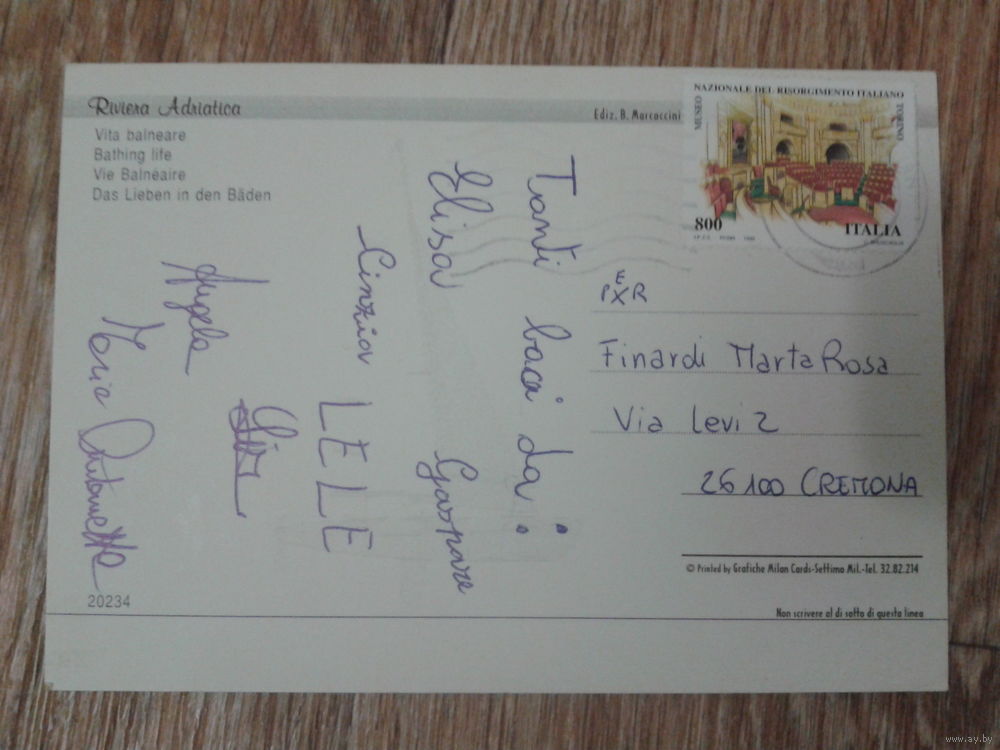 Riviera Adriatica
Vita balneare
Bathing life
Vie Balnéaire
Das Lieben in den Bäden
Ediz. B. Marcaccini
MUSEO NAZIONALE DEL RISORGIMENTO ITALIANO TORINO
800
ITALIA
Tanti baci da:
Elisa Gaspare
Cinzia LELE
Angela
Maria Antonietta
PEXR
Finardi Marta Rosa
Via Levi 2
26100 CREMONA
© Printed by Grafiche Milan Cards-Settimo Mil.-Tel. 32.82.214
Non scrivere al di sotto di questa linea
20234
www.ay.by